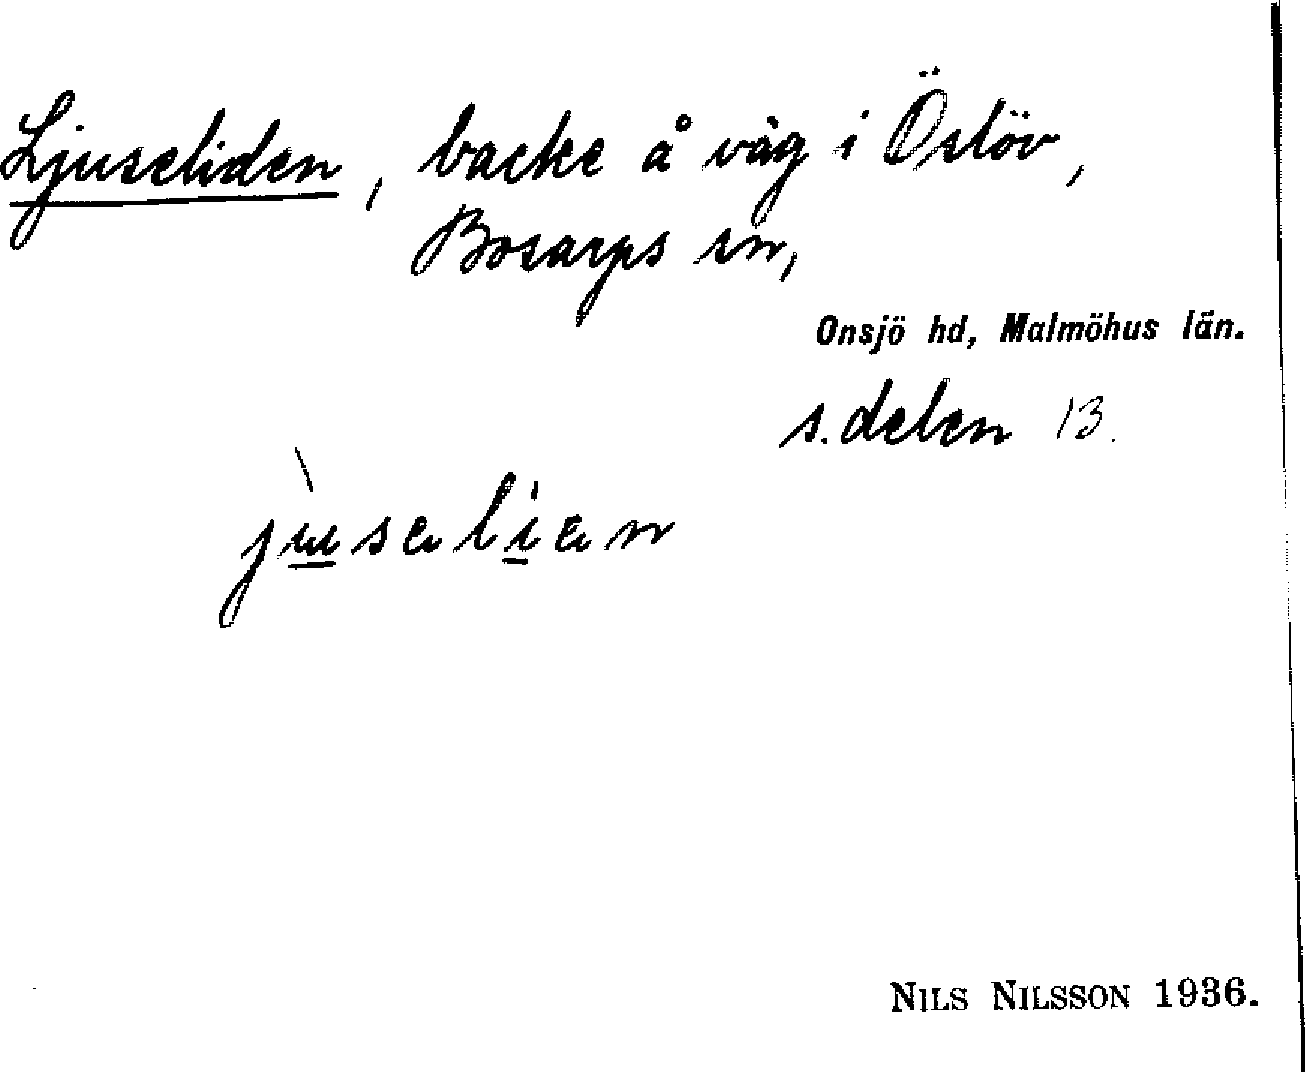 Ljuseliden, backe å väg i Öslöv,
Bosarps sn,
Onsjö hd, Malmöhus län.
s. delen 13.
jùsəliən
NILS NILSSON 1936.